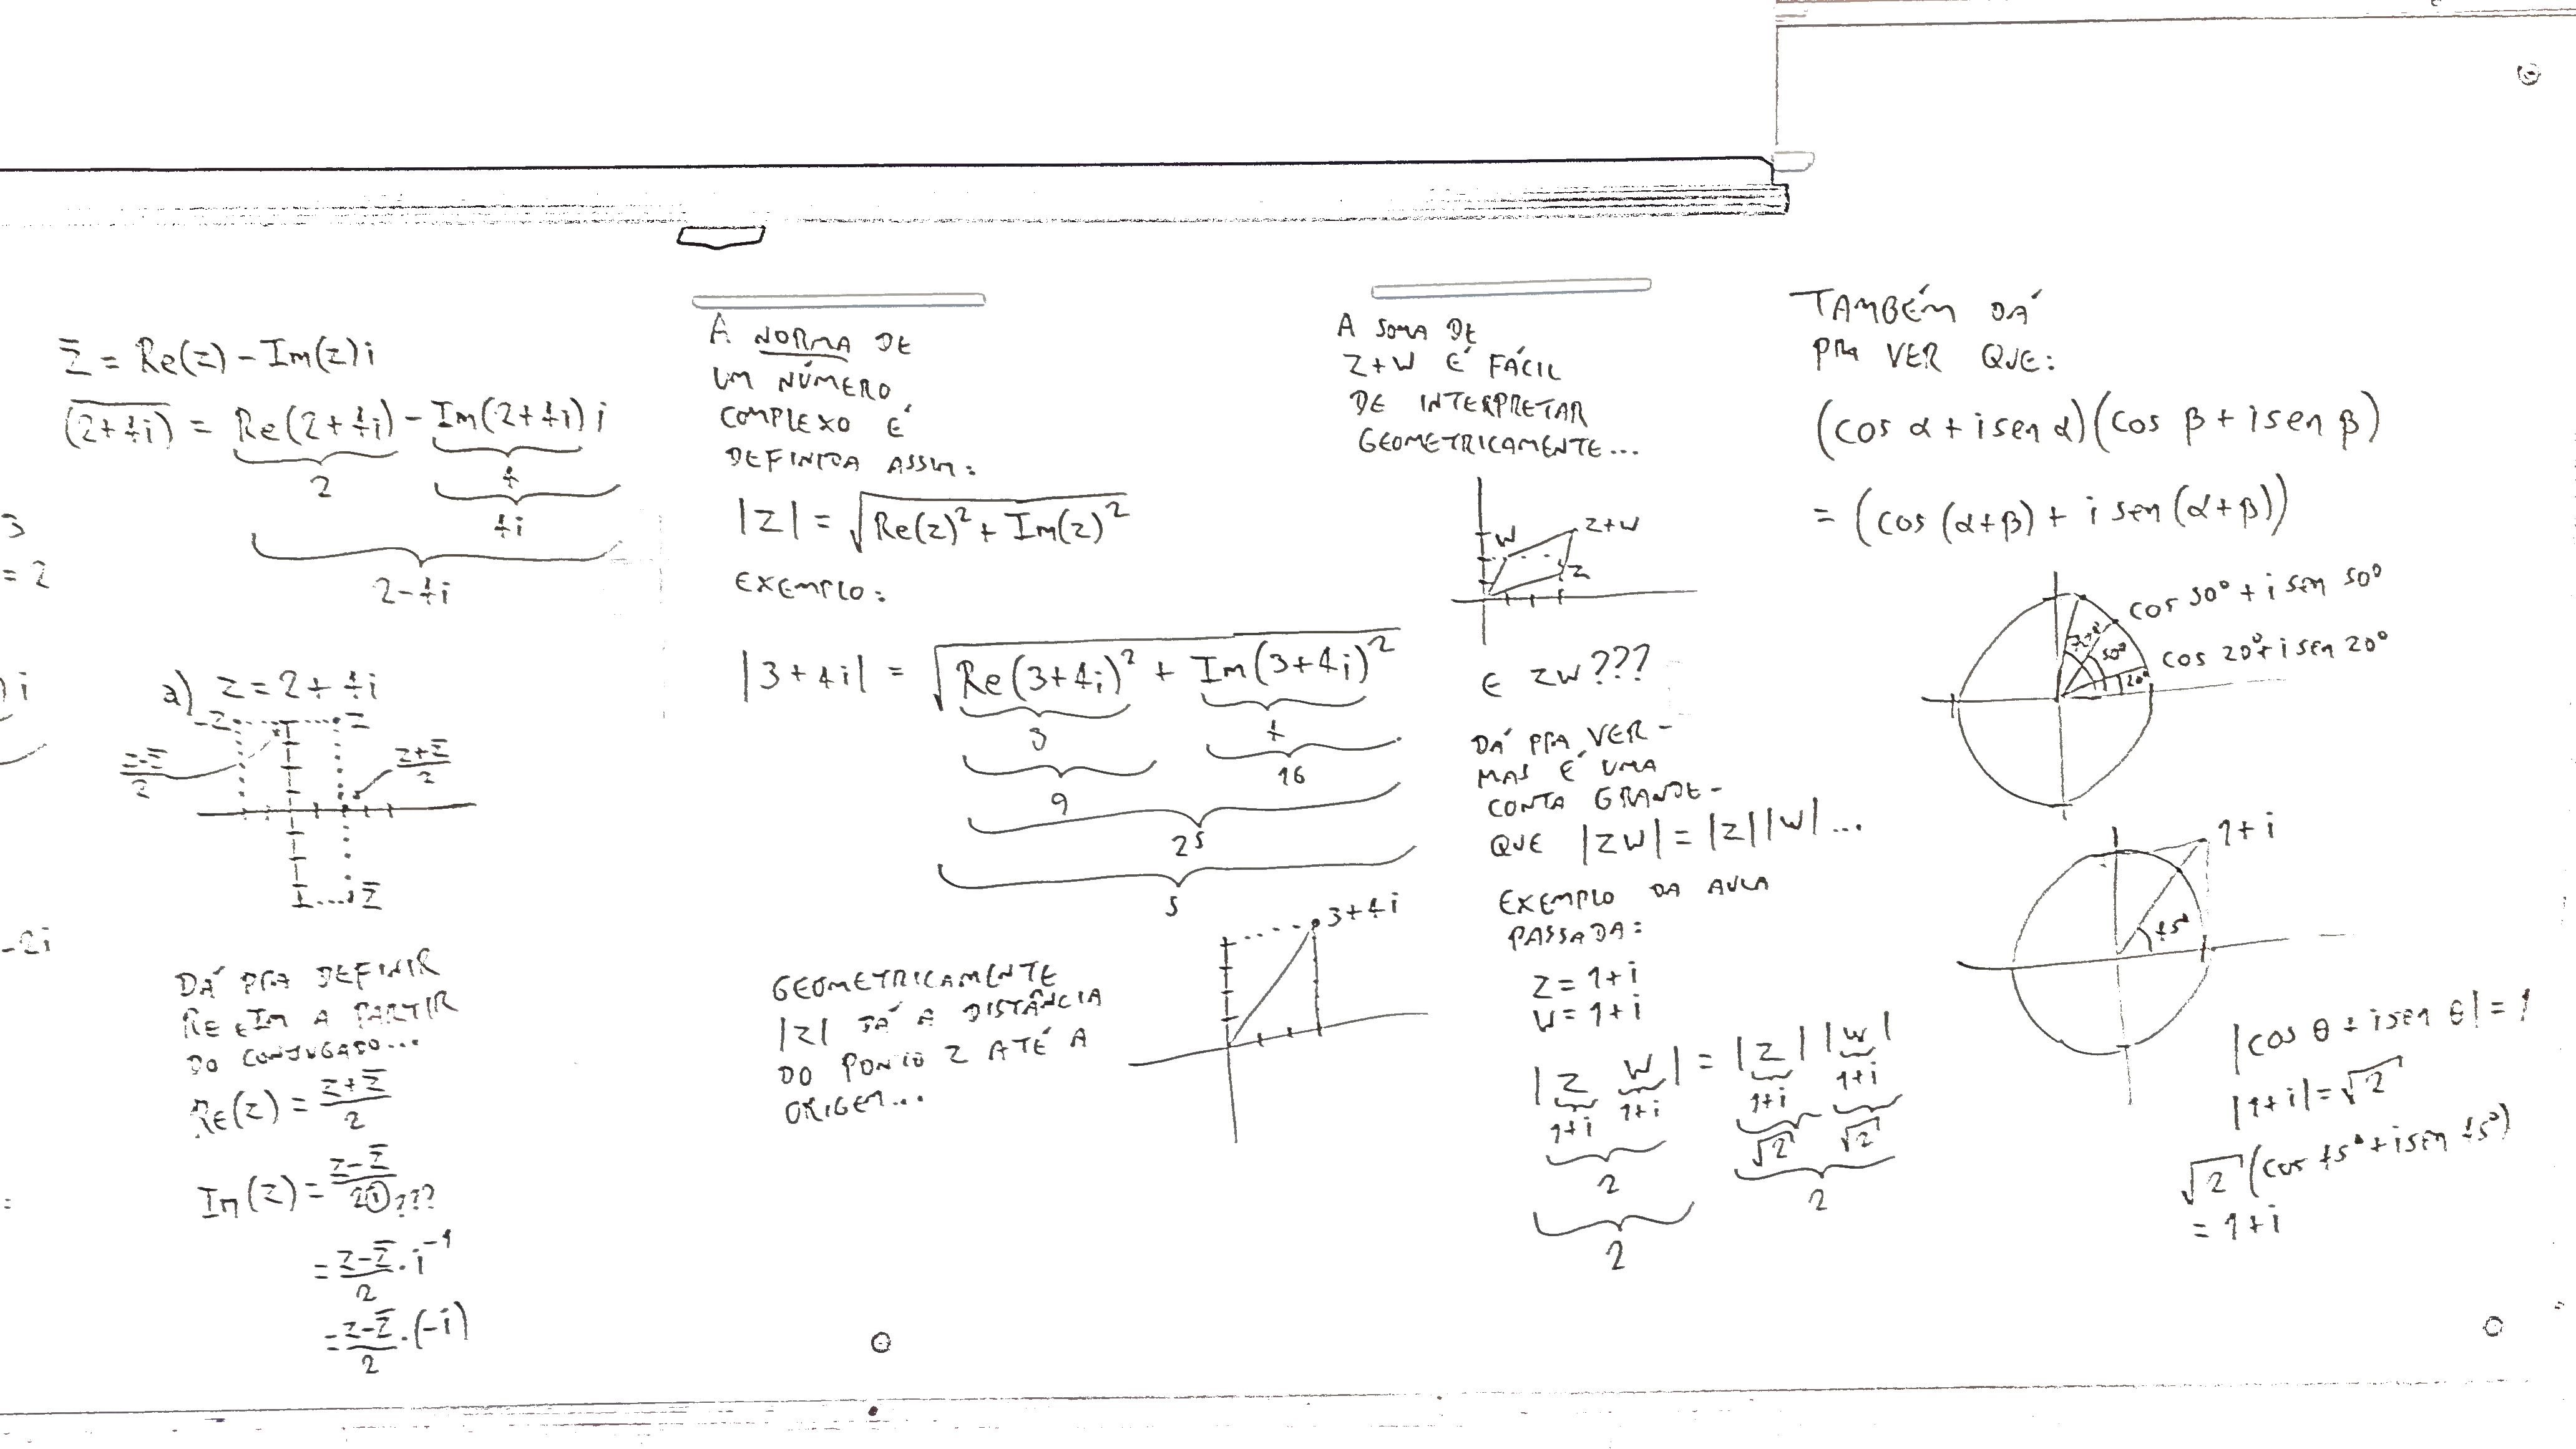 3
= 2
) i
-2i
=
z̄ = Re(z) - Im(z)i
(2+4i)‾ = Re(2+4i) - Im(2+4i) i
2
4
4i
2-4i
a) z = 2+4i
-z̄
z
z-z̄/2
z+z̄/2
z̄
DÁ PRA DEFINIR
RE E IM A PARTIR
DO CONJUGADO...
RE(z) = z+z̄/2
Im(z) = z-z̄/2i ???
= z-z̄/2 · i⁻¹
= z-z̄/2 · (-i)
A NORMA DE
UM NÚMERO
COMPLEXO É
DEFINIDA ASSIM:
|z| = √(Re(z)² + Im(z)²)
EXEMPLO:
|3+4i| = √(Re(3+4i)² + Im(3+4i)²)
3
4
9
16
25
5
3+4i
GEOMETRICAMENTE
|z| DÁ A DISTÂNCIA
DO PONTO z ATÉ A
ORIGEM...
A SOMA DE
z+w É FÁCIL
DE INTERPRETAR
GEOMETRICAMENTE...
w
z+w
z
E zw???
DÁ PRA VER -
MAS É UMA
CONTA GRANDE -
QUE |zw| = |z||w|...
EXEMPLO DA AULA
PASSADA:
z = 1+i
w = 1+i
|z w| = |z| |w|
1+i 1+i 1+i 1+i
2 √2 √2
2 2
TAMBÉM DÁ
PRA VER QUE:
(cos α + i sen α)(cos β + i sen β)
= (cos (α+β) + i sen (α+β))
cos 50° + i sen 50°
cos 20° + i sen 20°
70°
50°
20°
1+i
45°
|cos θ + i sen θ| = 1
|1+i| = √2
√2 (cos 45° + i sen 45°)
= 1+i